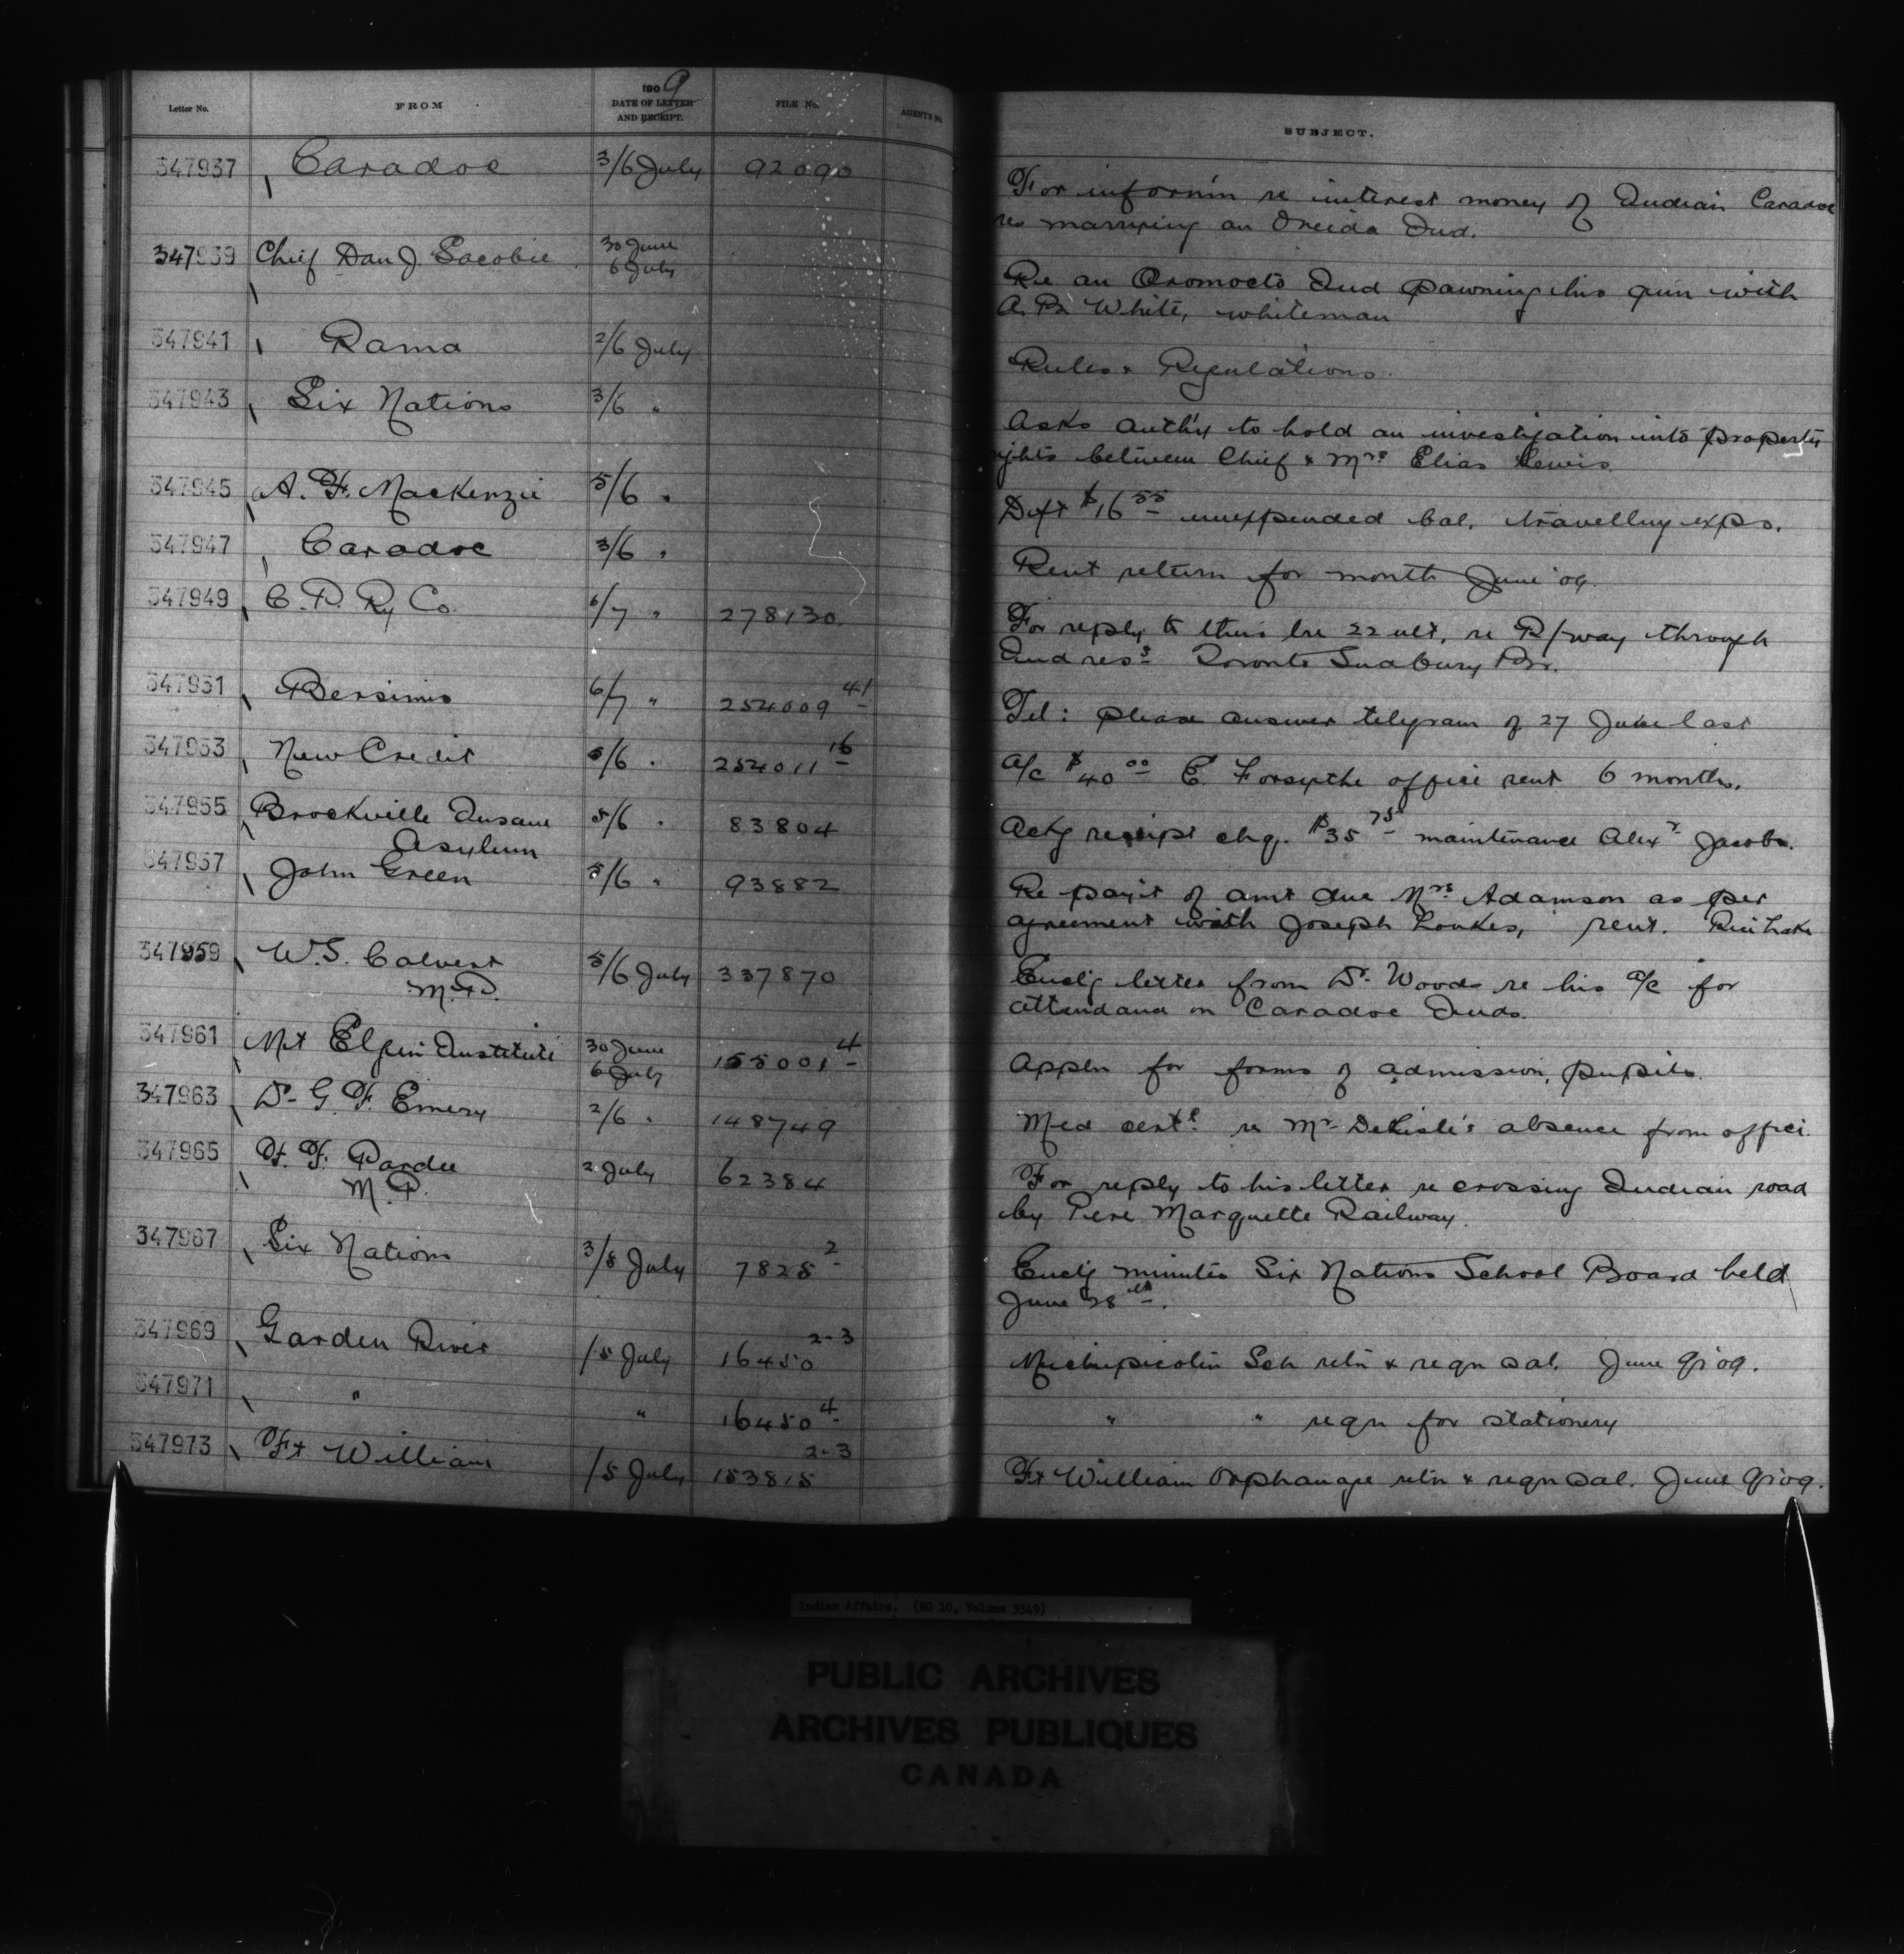 Letter No. FROM 1909 DATE OF LETTER AND RECEIPT. FILE No. AGENT'S No. SUBJECT.
347937 Caradoc 3/6 July 92090 For inform'n re interest money of Indian Caradoc
res marrying an Oneida Ind.
347939 Chief Dan J. Sacobie 30 June 6 July Re an Oromocto Ind pawning his gun with
A. B. White, whiteman
347941 Rama 2/6 July Rules & Regulations.
347943 Six Nations 3/6 " Asks auth'y to hold an investigation into property
rights between Chief & Mrs Elias Lewis.
347945 A. F. MacKenzie 5/6 " Dft $16 55 unexpended bal. travelling exps.
347947 Caradoc 3/6 " Rent return for month June '09.
347949 C. P. Ry Co. 6/7 " 278130 For reply to theirs lre 22 ult, re R/way through
Ind ress Toronto Sudbury Br.
347951 Bersimis 6/7 " 254009 41 Tel: please answer telegram of 27 June last
347953 New Credit 5/6 " 254011 16 a/c $40 00 E. Forsythe office rent 6 months.
347955 Brockville Insane
Asylum 5/6 " 83804 Ackg receipt chq. $35 75 maintenance Alexr Jacobs.
347957 John Green 5/6 " 93882 Re pay't of amt due Mrs Adamson as per
agreement with Joseph Loukes, rent. Rice Lake
347959 W. S. Calvert
M.P. 5/6 July 337870 Enclg letter from Dr Woods re his a/c for
attendance on Caradoc Inds.
347961 Mt Elgin Institute 30 June 6 July 155001 4 Appln for forms of admission, pupils.
347963 Dr G. F. Emery 2/6 " 148749 Med cert. re Mr DeLisle's absence from office.
347965 F. F. Pardee
M.P. 2 July 62384 For reply to his letter re crossing Indian road
by Pere Marquette Railway.
347967 Six Nations 3/8 July 7825 2 Enclg minutes Six Nations School Board held
June 28th.
347969 Garden River /5 July 16450 2-3 Michipicoten Sch retn & reqn sal. June qr 09.
347971 " " 16450 4 " " reqn for stationery
347973 Ft William /5 July 153815 2-3 Ft William Orphanage retn & reqn sal. June qr 09.
Indian Affairs. (RG 10, Volume 3349)
PUBLIC ARCHIVES
ARCHIVES PUBLIQUES
CANADA